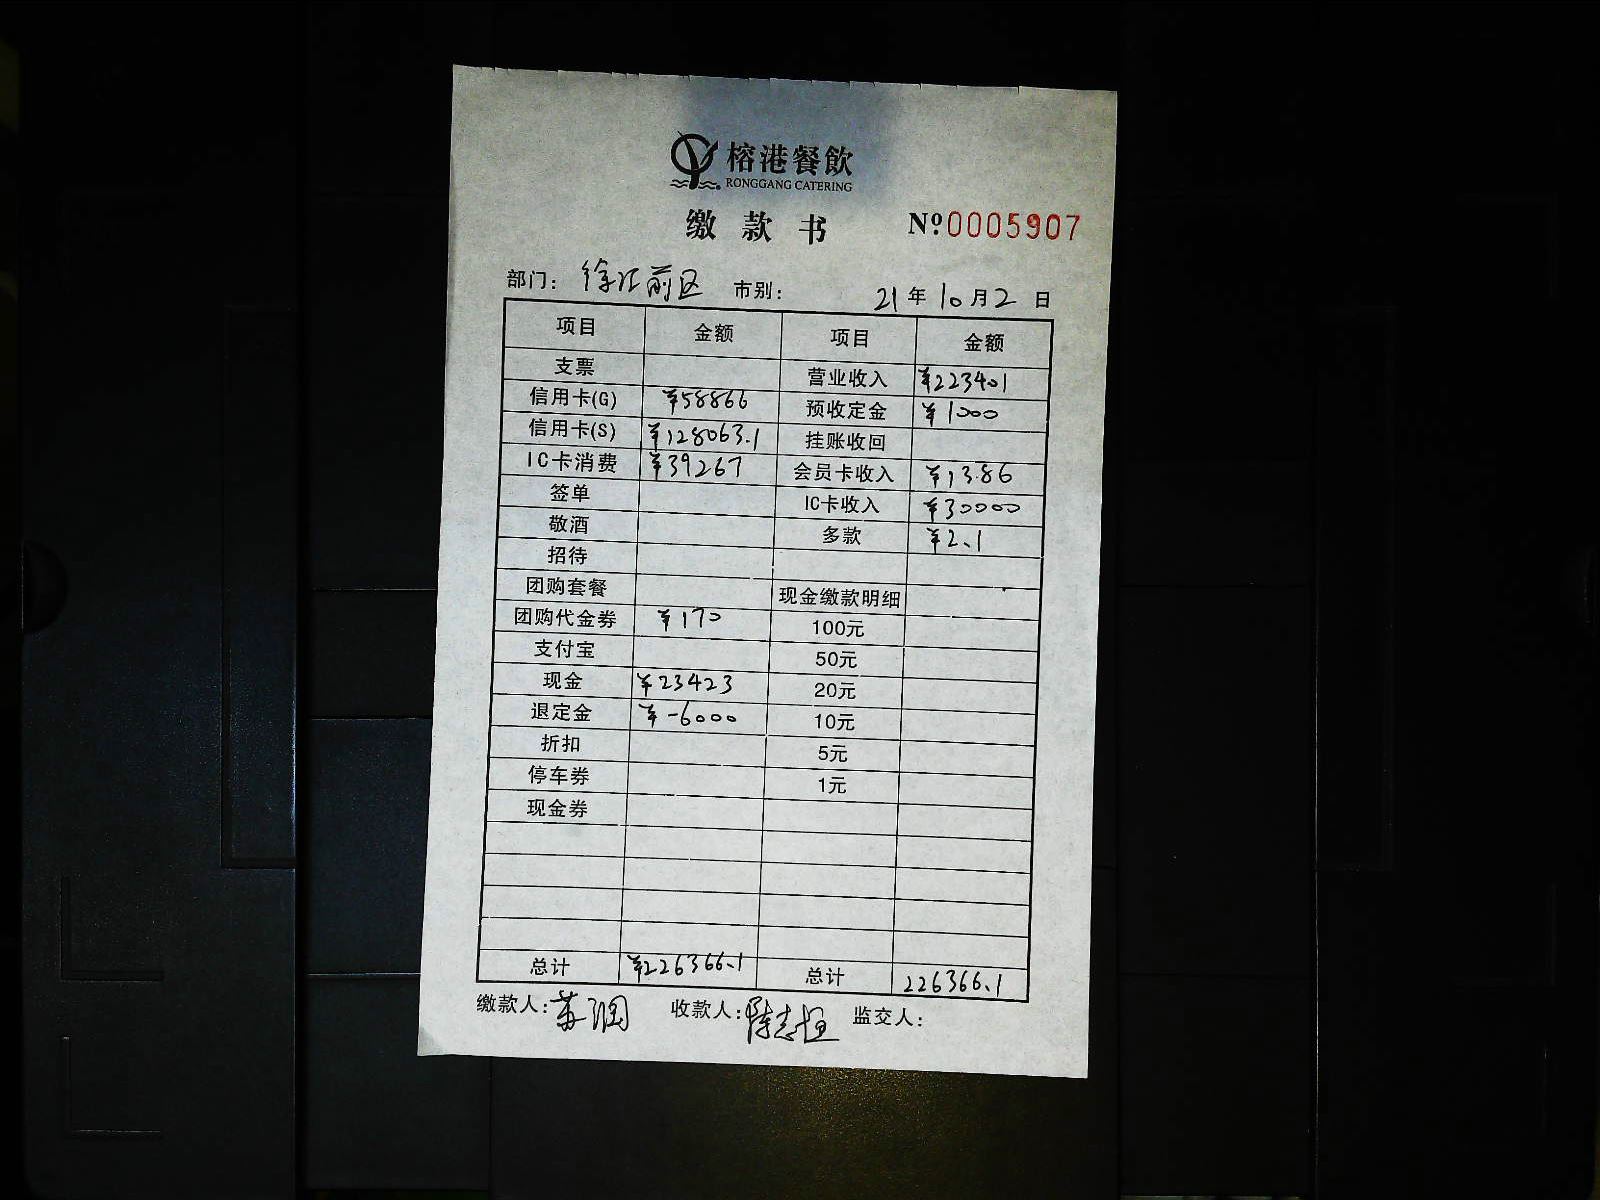 榕港餐飲
RONGGANG CATERING
缴款书 Nº:0005907
部门: 徐汇前区 市别: 21年10月2日
项目 金额 项目 金额
支票 营业收入 ¥223401
信用卡(G) ¥58866 预收定金 ¥1000
信用卡(S) ¥128063.1 挂账收回
IC卡消费 ¥39267 会员卡收入 ¥1386
签单 IC卡收入 ¥30000
敬酒 多款 ¥2.1
招待
团购套餐 现金缴款明细
团购代金券 ¥170 100元
支付宝 50元
现金 ¥23423 20元
退定金 ¥-6000 10元
折扣 5元
停车券 1元
现金券
总计 ¥226366.1 总计 226366.1
缴款人: 收款人:陈志恒 监交人: